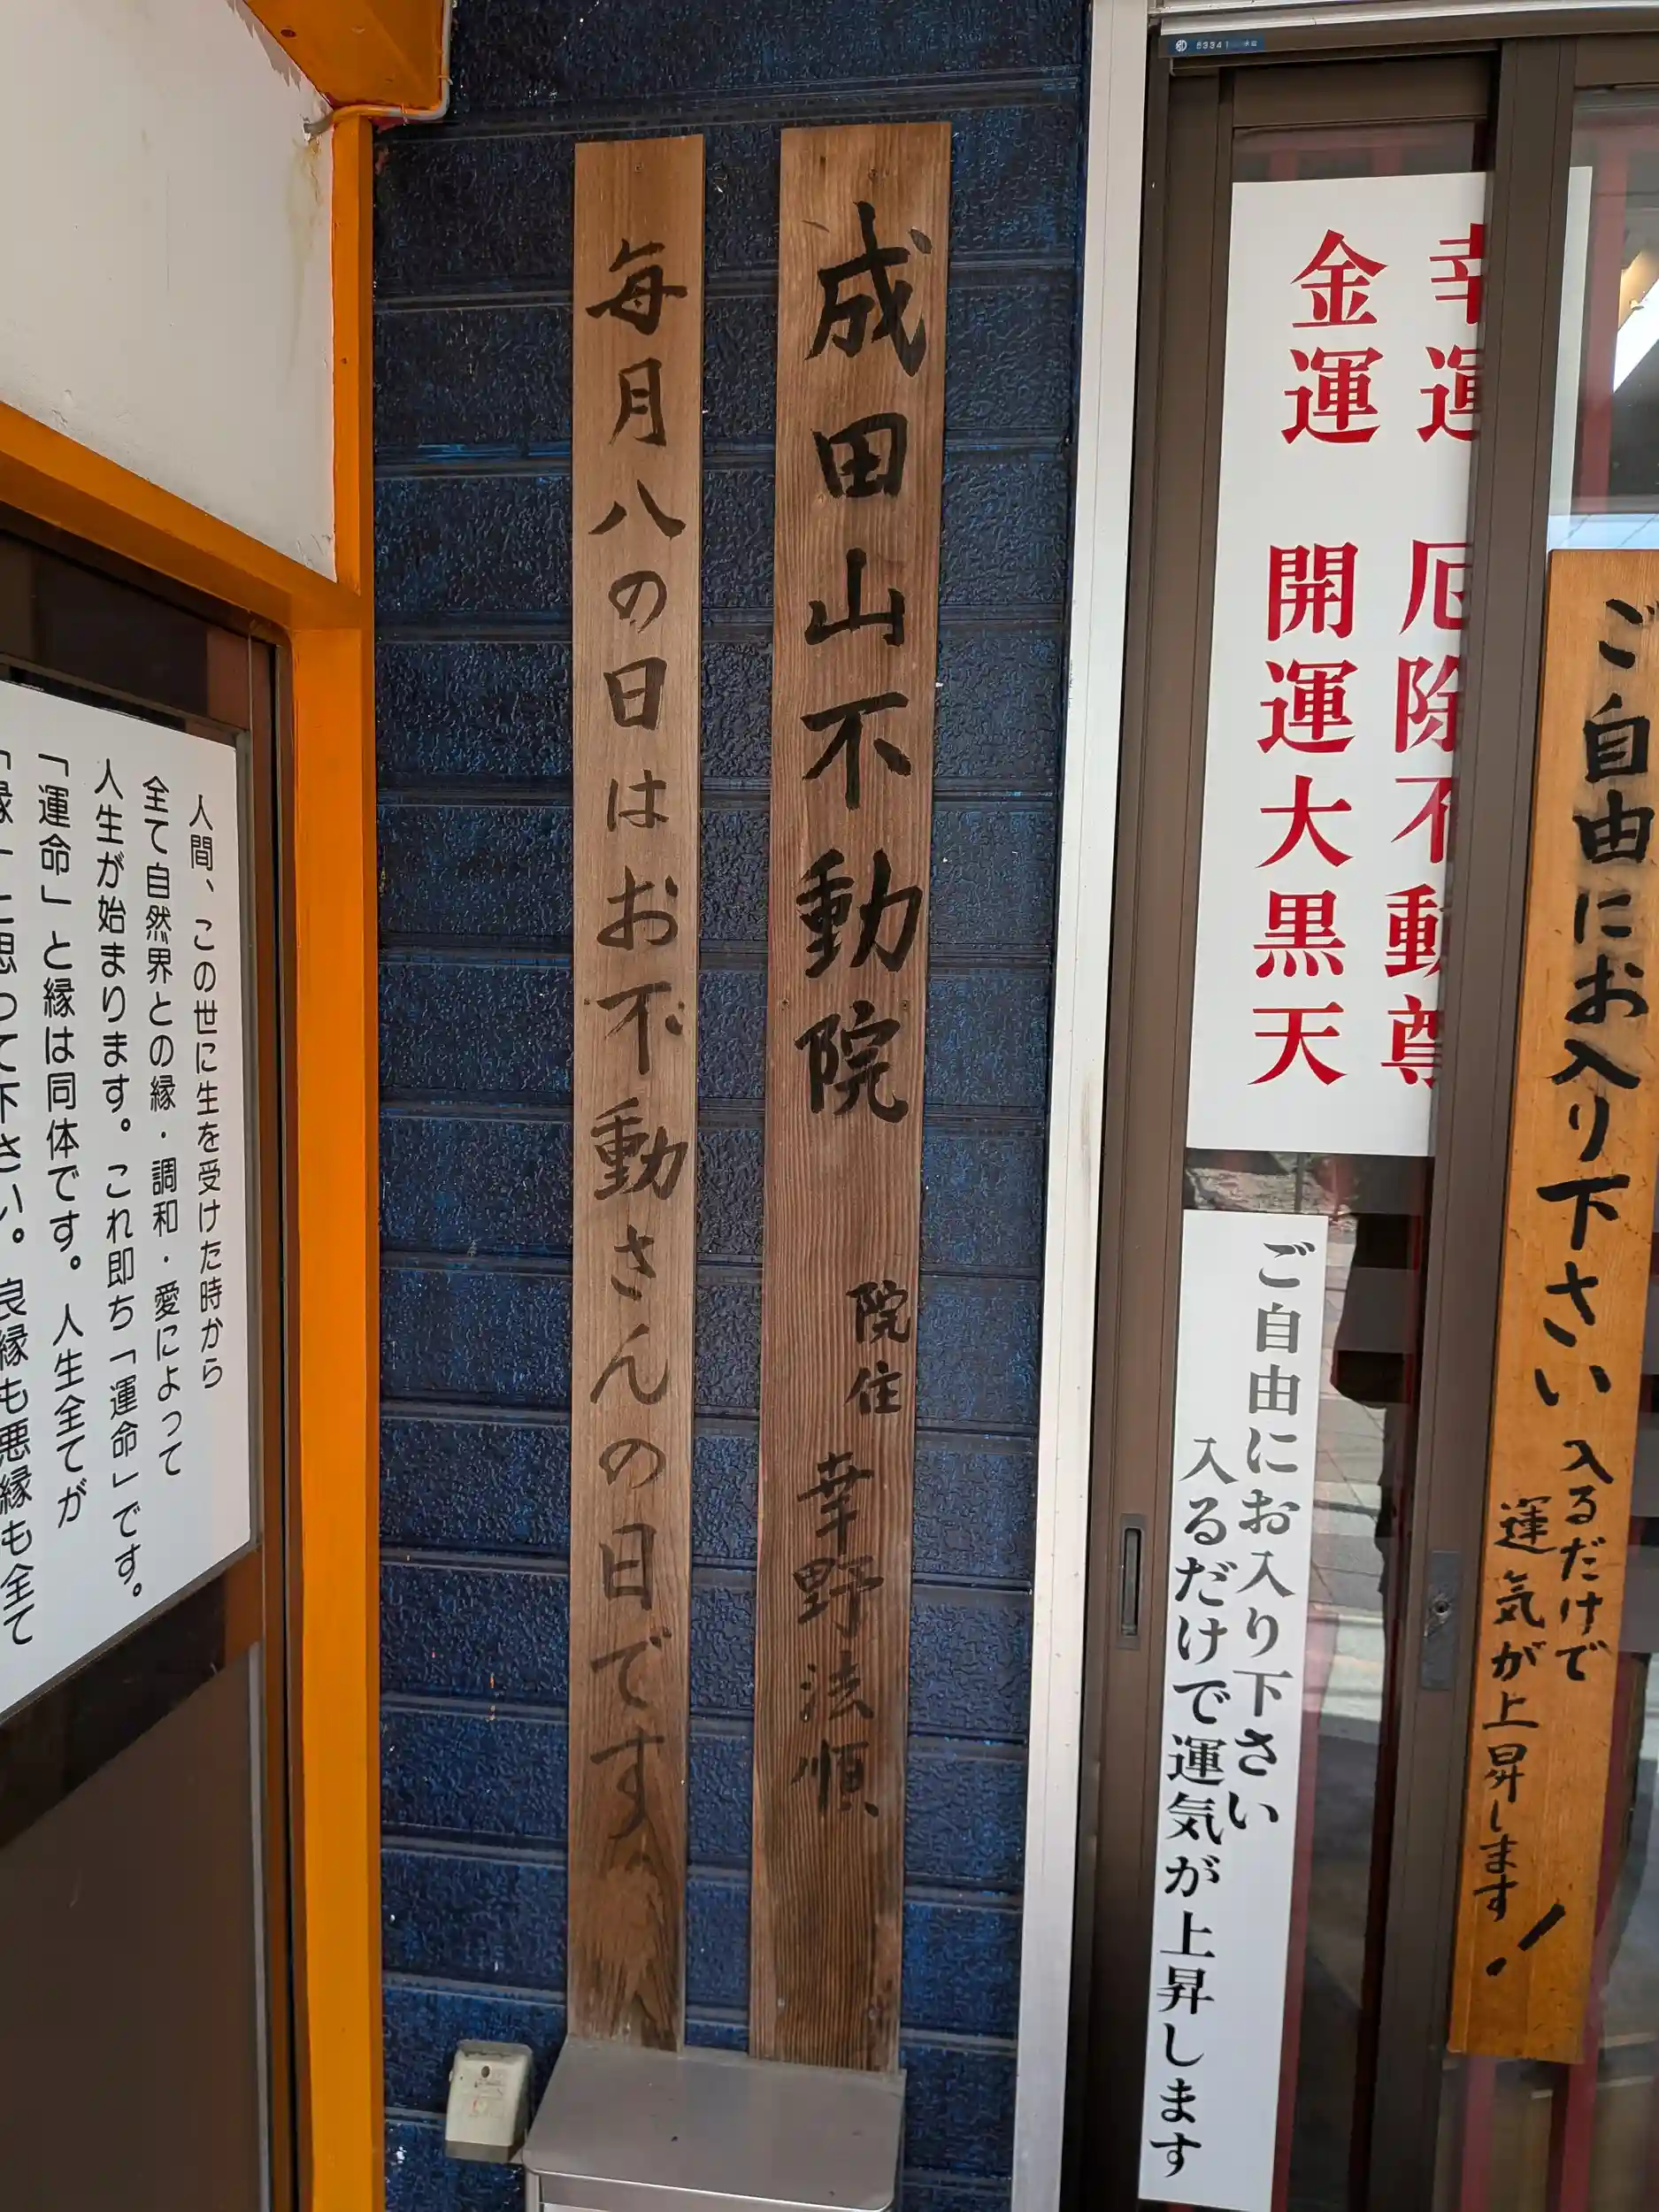 ご自由にお入り下さい
入るだけで
運気が上昇します!
幸運 厄除不動尊
金運 開運大黒天
ご自由にお入り下さい
入るだけで運気が上昇します
成田山不動院
院住
幸野法順
毎月八の日はお不動さんの日です
人間、この世に生を受けた時から
全て自然界との縁・調和・愛によって
人生が始まります。これ即ち「運命」です。
「運命」と縁は同体です。人生全てが
「縁」と思って下さい。良縁も悪縁も全て